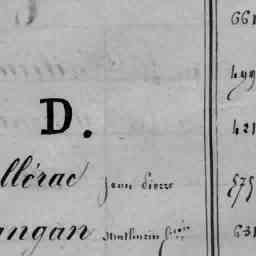 661
499
D.
421
llérac Jean Pierre 575
angan Mathurin 631